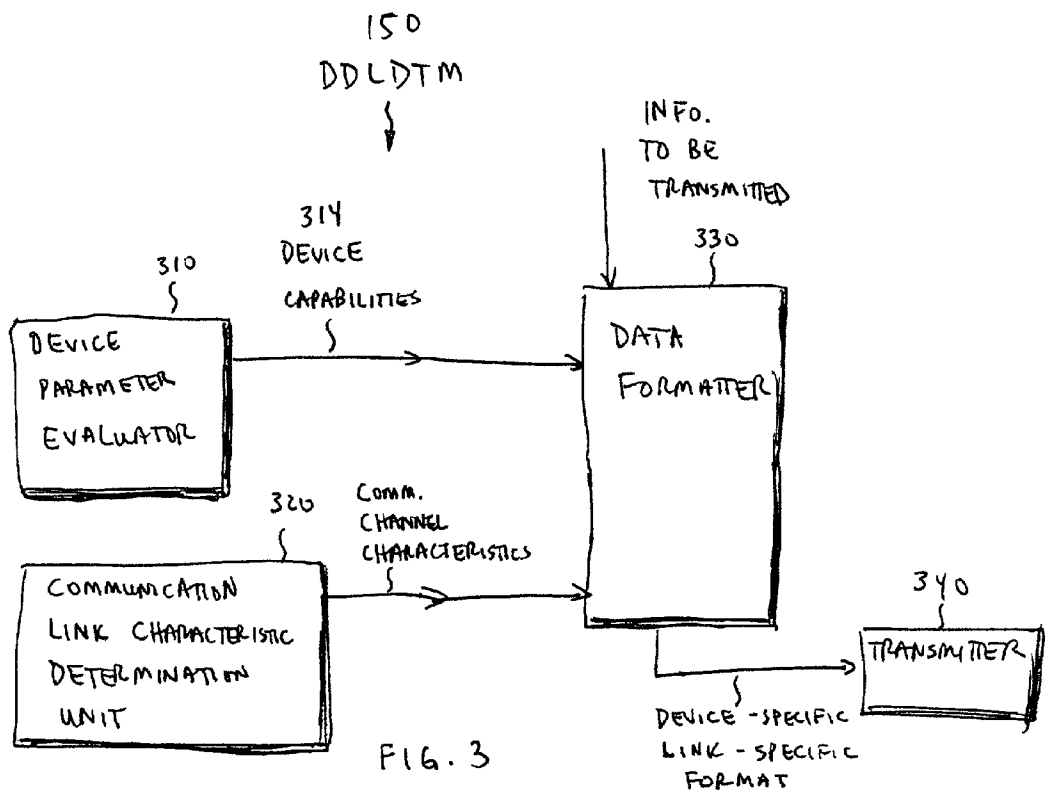 150
DDLDTM
INFO.
TO BE
TRANSMITTED
314
DEVICE
CAPABILITIES
310
330
DEVICE
PARAMETER
EVALUATOR
DATA
FORMATTER
320
COMM.
CHANNEL
CHARACTERISTICS
COMMUNICATION
LINK CHARACTERISTIC
DETERMINATION
UNIT
340
TRANSMITTER
DEVICE-SPECIFIC
LINK-SPECIFIC
FORMAT
FIG. 3